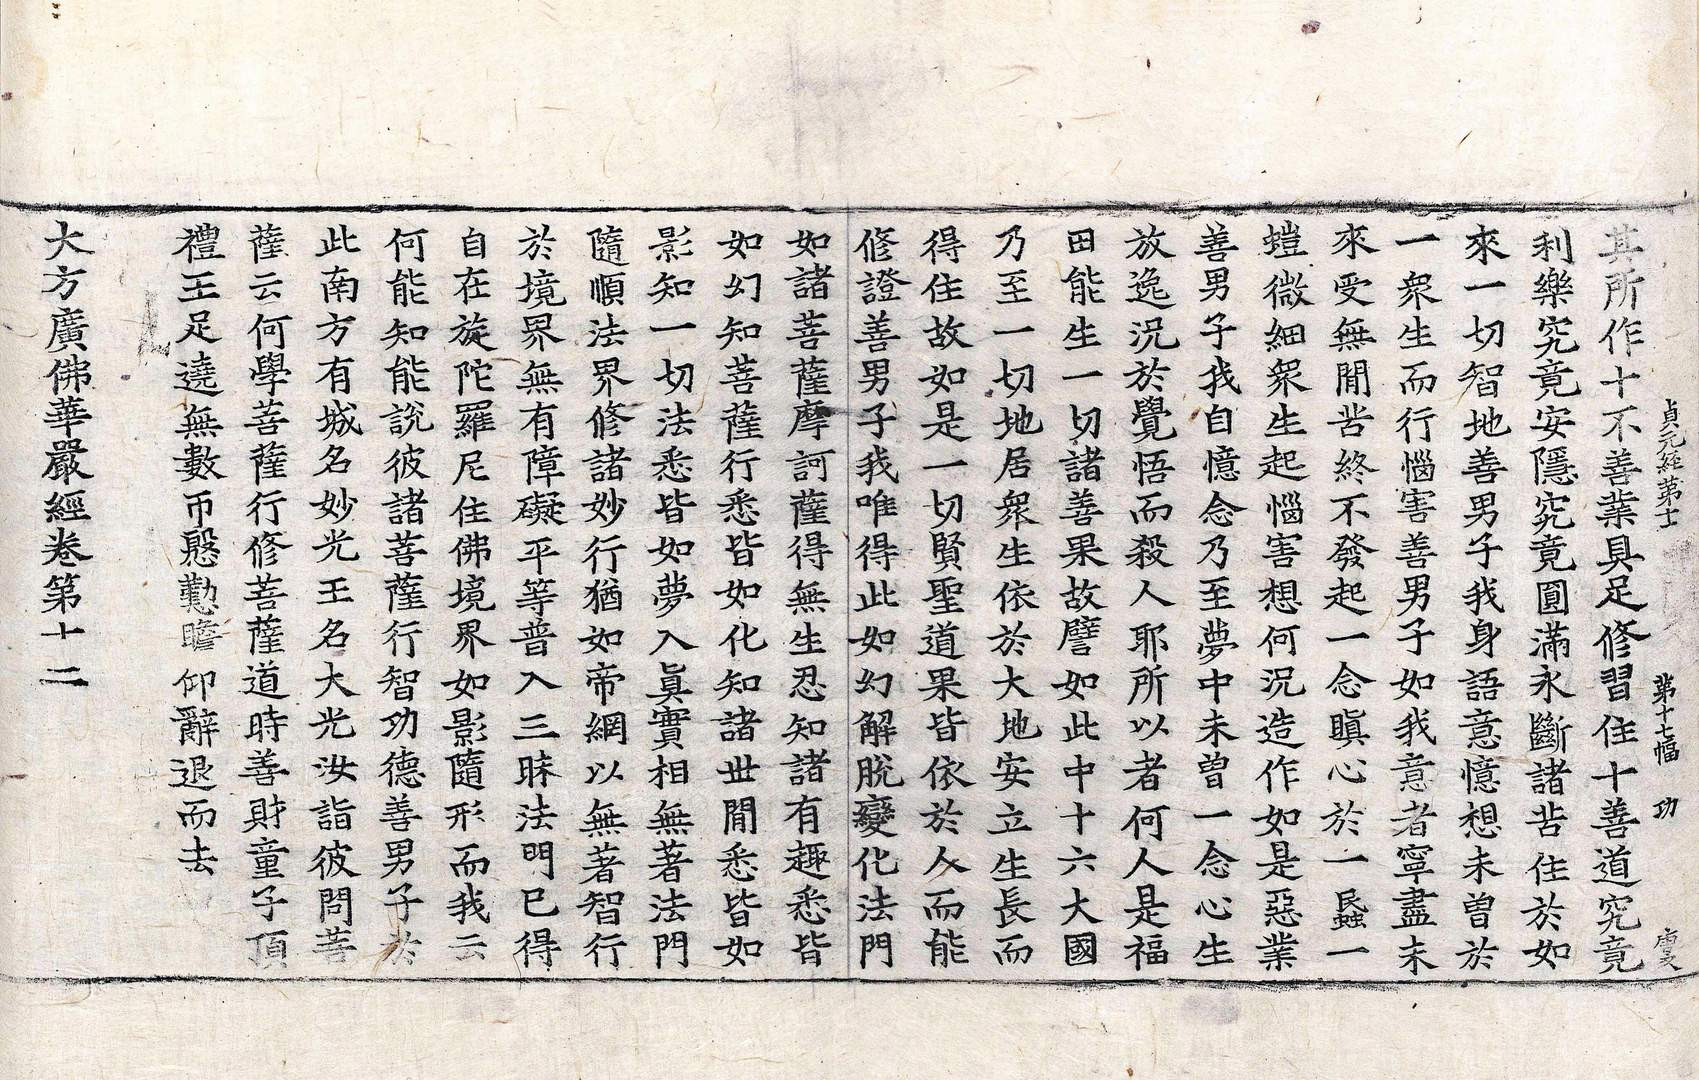 貞元經第十二 第十七幅 功
其所作十不善業具足修習住十善道究竟
利樂究竟安隱究竟圓滿永斷諸苦住於如
來一切智地善男子我身語意憶想未曾於
一衆生而行惱害善男子如我意者寧盡未
來受無間苦終不發起一念瞋心於一蟁一
螘微細衆生起惱害想何況造作如是惡業
善男子我自憶念乃至夢中未曾一念心生
放逸況於覺悟而殺人耶所以者何人是福
田能生一切諸善果故譬如此中十六大國
乃至一切地居衆生依於大地安立生長而
得住故如是一切賢聖道果皆依於人而能
修證善男子我唯得此如幻解脫變化法門
如諸菩薩摩訶薩得無生忍知諸有趣悉皆
如幻知菩薩行悉皆如化知諸世間悉皆如
影知一切法悉皆如夢入眞實相無著法門
隨順法界修諸妙行猶如帝網以無著智行
於境界無有障礙平等普入三昧法門已得
自在旋陀羅尼住佛境界如影隨形而我云
何能知能說彼諸菩薩行智功德善男子於
此南方有城名妙光王名大光汝詣彼問菩
薩云何學菩薩行修菩薩道時善財童子頂
禮王足遶無數帀慇懃瞻仰辭退而去
大方廣佛華嚴經卷第十二